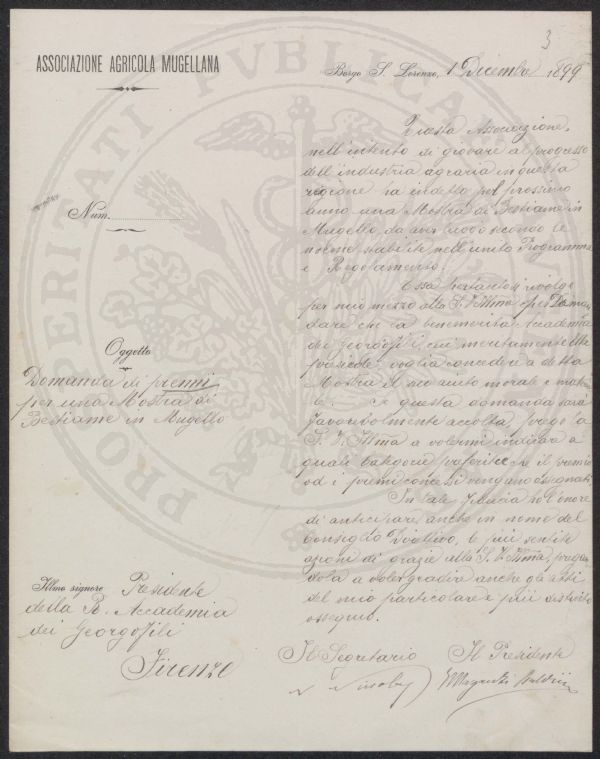 3
ASSOCIAZIONE AGRICOLA MUGELLANA
Borgo S. Lorenzo, 1 Dicembre 1899
Num.
Oggetto
Domanda di premi
per una Mostra di
Bestiame in Mugello
Illmo signore Presidente
della R. Accademia
dei Georgofili
Firenze
Questa Associazione,
nell'intento di giovare al progresso
dell'industria agraria in questa
regione ha indetto pel prossimo
anno una Mostra di Bestiame in
Mugello, da aver luogo secondo le
norme stabilite nell'unito Programma
e Regolamento.
Essa pertanto si rivolge
per mio mezzo alla S. V. Illma per Doman
dare che la benemerita Accademia
dei Georgofili, cui meritamente Ella
presiede voglia concedere a detta
Mostra il suo aiuto morale e mate
le. Se questa domanda sarà
favorevolmente accolta, prego la
S. V. Illma a volermi indicare a
quali Categorie preferisce che il premio
od i premi concessi vengano assegnati.
In tale fiducia ho l'onore
di anticipare, anche in nome del
Consiglio Direttivo, le più sentite
azioni di grazie alla S. V. Illma, pregan
dola a voler gradire anche gli atti
del mio particolare e più distinto
ossequio.
Il Segretario Il Presidente
PROSPERITATI PVBLICAE